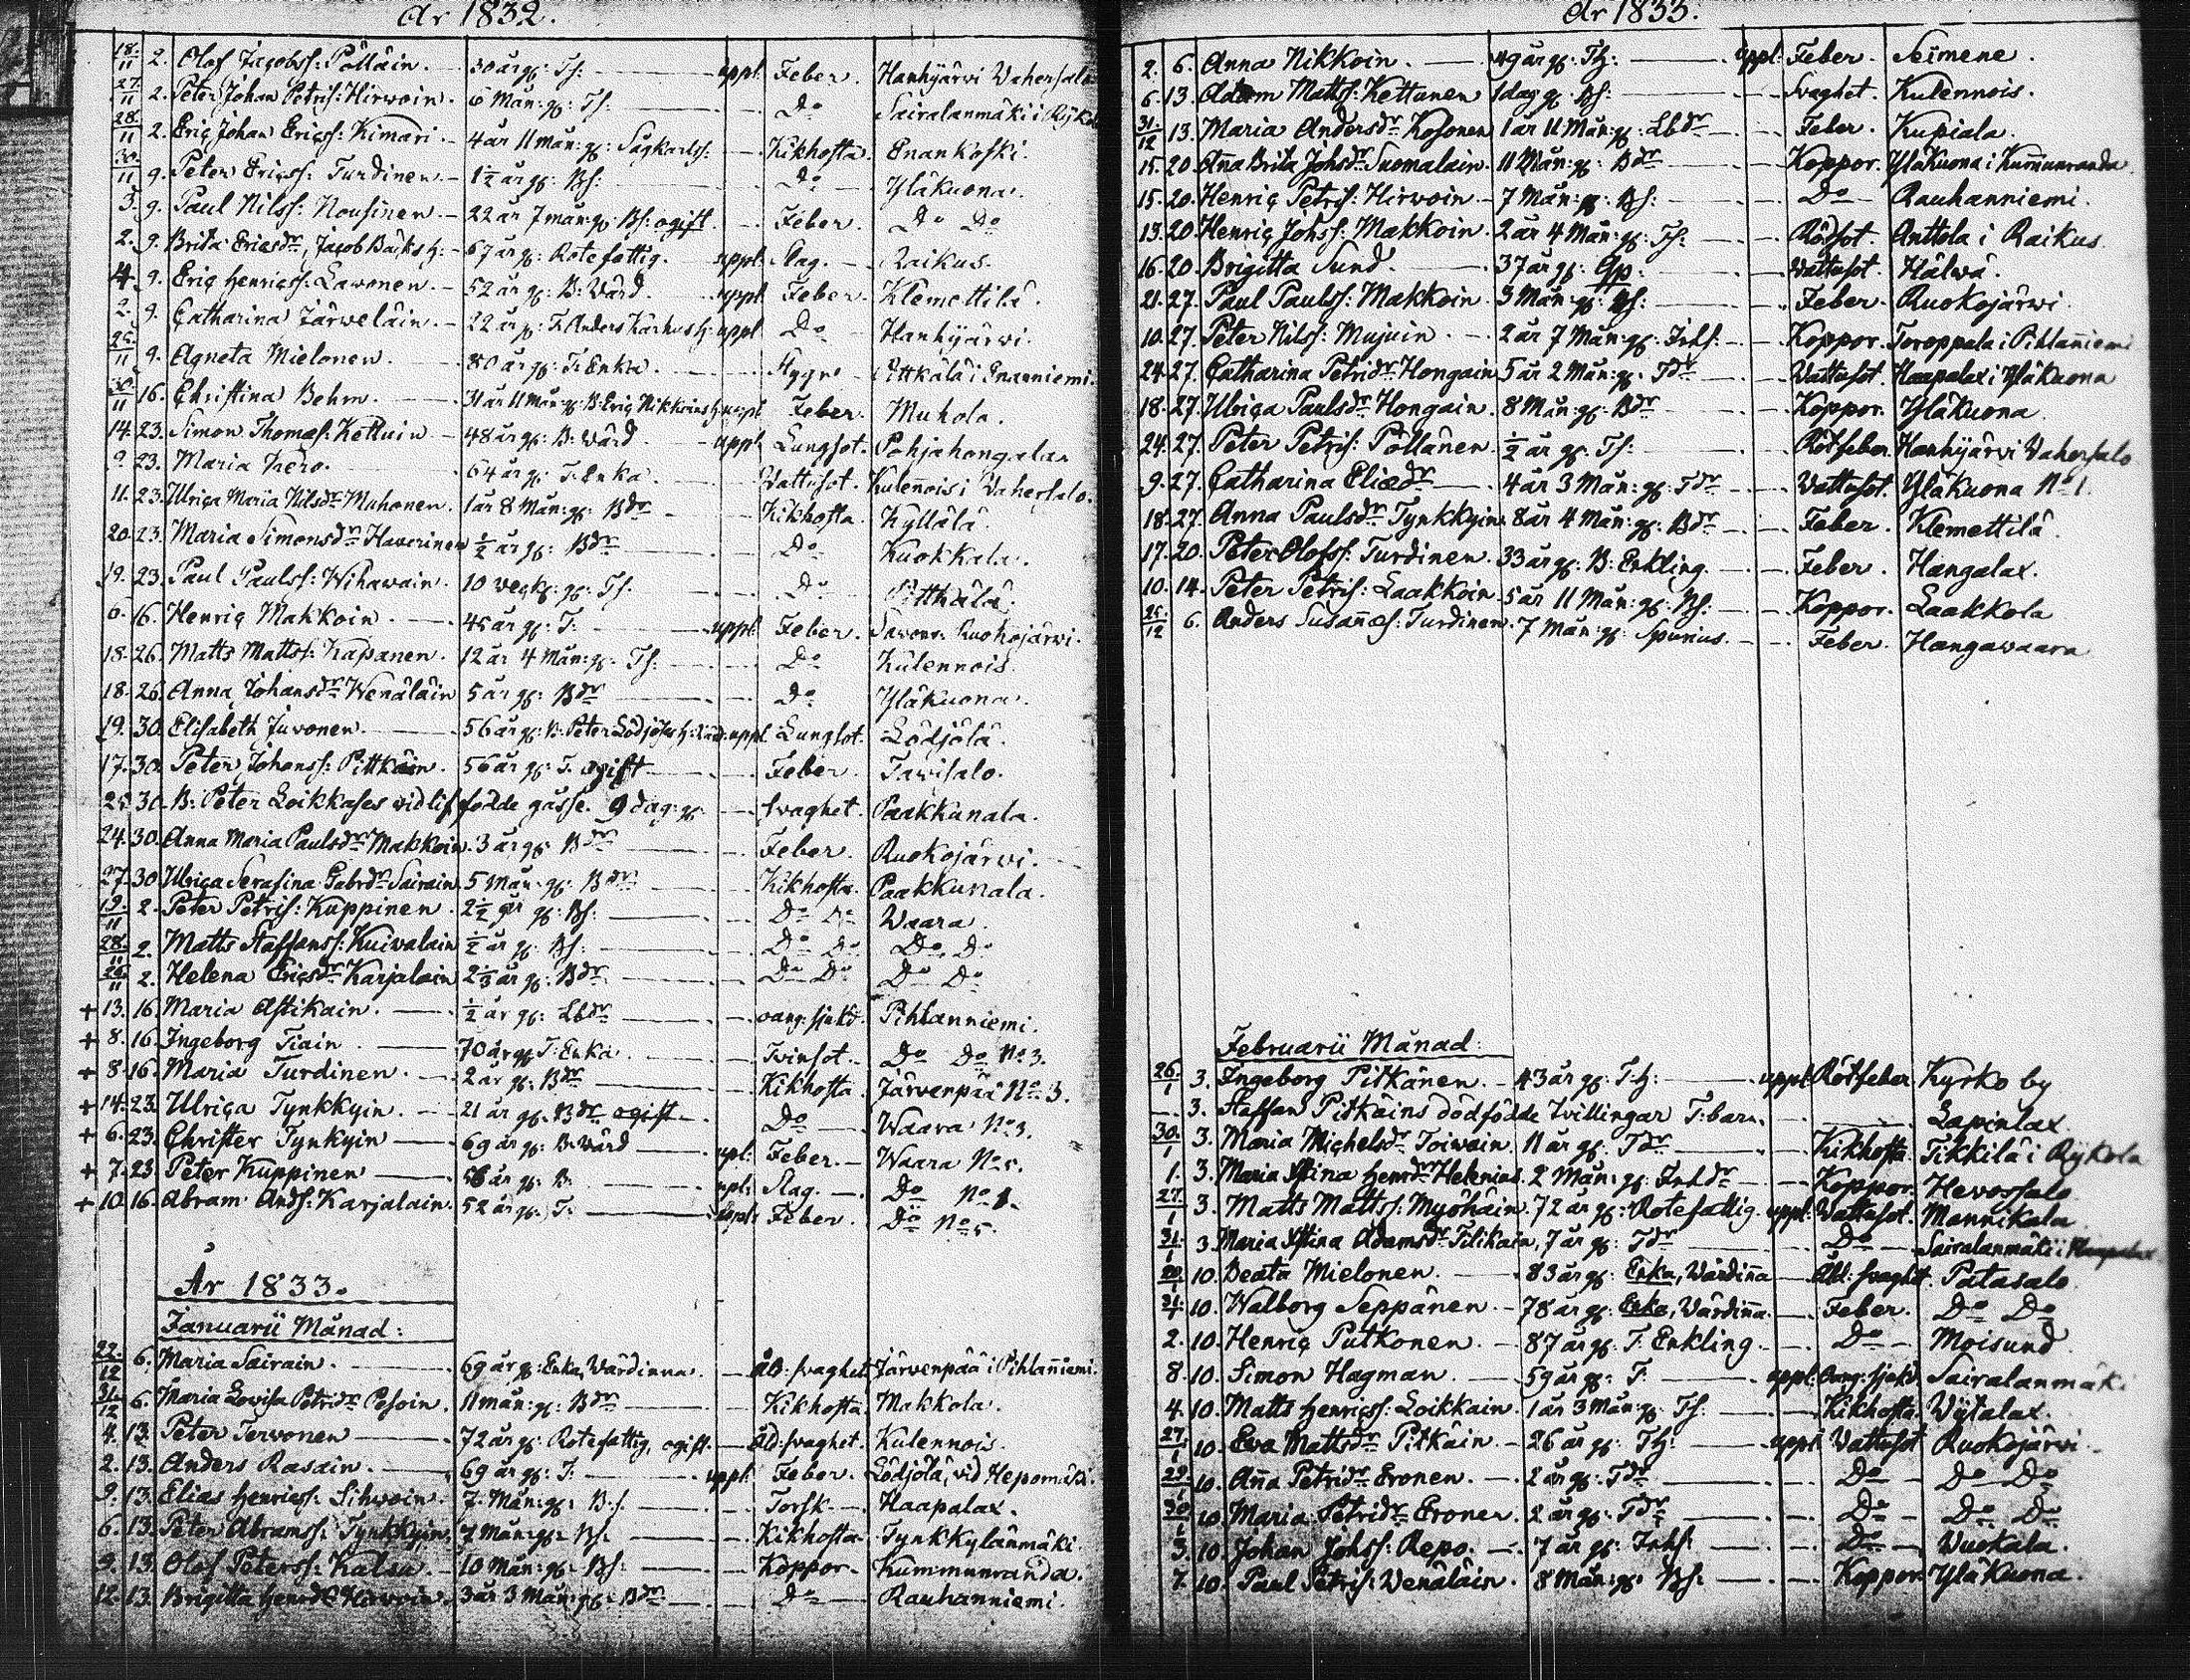 År 1832.
18/11 2. Olof Jacobss: Pölläin. 30 år g: Ts: uppl: Feber. Hanhijärvi Vahersalo
27/11 2. Peter Johan Petris: Hirwoin. 6 Mån: g: Ts: Do Sairalanmäki i
28/11 2. Eriç Johan Ericss: Kimari. 4 år 11 mån: g: Kikhosta. Enankoski.
30/11 9. Peter Ericss: Turdinen. 1½ år g: Bs: Do Yläkuona.
3. 9. Paul Nilss: Nousinen. 22 år 7 mån: g: Bs: ogift. Feber. Do Do
2. 9. Brita Ericsdr, Jacob Bäcks h: 67 år g: Rotefattig. uppl: Slag. Raikus.
4. 9. Eriç Henricss: Lawonen. 52 år g: B: Värd. uppl: Feber. Klemettilä.
2. 9. Catharina Järweläin. 22 år g: T: Anders Karhus h: uppl: Do Hanhijärvi.
25/11 9. Agneta Mielonen. 80 år g: T: Enka. Pittkälä i Enanniemi.
30/11 16. Christina Behm. 31 år 11 Mån: g: B: Eriç Nikkoins h: uppl: Feber. Muhola.
14. 23. Simon Thomæs: Kettuin 48 år g: B: Värd. uppl: Lungsot. Pohjahongala.
9. 23. Maria 64 år g: T: Enka. Vattusot. Kulennois i Vahersalo.
11. 23. Ulrica Maria Nilsdr Muhonen. 1 år 8 Mån: g: Bdr Kikhosta. Kyllälä.
20. 23. Maria Simonsdr Haverinen ½ år g: Bdr Do Kuokkala.
19. 23. Paul Paulss: Wihawain. 10 veck: g: Ts: Do Pittkälä.
6. 16. Henriç Makkoin. 45 år g: T: uppl: Feber. Savonr. Ruokojärvi.
18. 26. Matts Mattss: Kapanen. 12 år 4 Mån: g: Ts: Do Kulennois.
18. 26. Anna Johansdr Wenäläin 5 år g: Bdr Do Yläkuona.
19. 30. Elisabeth Juvonen. 56 år g: B: Peter h: uppl: Lungsot. Lödjölä.
17. 30. Peter Johanss: Pittkäin. 56 år g: T. ogift Feber. Tavisalo.
25. 30. B: Peter Loikkases vid lif födde gåsse. 9 dag: g: Svaghet. Paakkunala.
24. 30. Anna Maria Paulsdr Makkoin. 3 år g: Bdr Feber. Ruokojärvi.
27. 30. Ulrica Serafina Gabrdr Sairain. 5 Mån: g: Bdr Kikhosta. Paakkunala.
19/11 2. Peter Petris: Kuppinen. 2½ år g: Bs: Do Do Waara.
28/11 2. Matts Staffanss: Kuivalain ½ år g: Bs: Do Do Do Do
26/11 2. Helena Ericsdr Karjalain 2½ år g: Bdr Do Do Do Do
+ 13. 16. Maria Astikain. ½ år g: Lbdr oang: sjukd. Pihlanniemi.
+ 8. 16. Ingeborg Tiain. 70 år g: T: Enka. Tvinsot. Do Do No 3.
+ 8. 16. Maria Turdinen. 2 år g: Bdr Kikhosta. Järvenpää No 3.
+ 14. 23. Ulrica Tynkkyin. 21 år g: Bdr ogift Do Waara No 3.
+ 6. 23. Christer Tynkyin 69 år g: B: Värd upl: Feber. Waara No 5.
+ 7. 23 Peter Kuppinen 56 år g: B: upl: Slag. Do No 1.
+ 10. 16. Abram Ands: Karjalain. 52 år g: T: uppl: Feber. Do No 5.
År 1833.
Januarii Månad:
22/12 6. Maria Sairain. 69 år g: Enka, Värdinna. Åld: svaghet Järvenpää i Pihlanniemi.
31/12 6. Maria Lovisa Petridr Pesoin. 11 mån: g: Bdr Kikhosta. Makkola.
4. 13. Peter Tervonen 72 år g: Rotefattig, ogift. Åld: svaghet. Kulennois.
2. 13. Anders Rasain. 69 år g: T: uppl: Feber. Lödjölä, vid Hepomäki.
9. 13. Elias Henricss: Sihvoin. 7. Mån: g: B:s. Torsk. Haapalax.
6. 13. Peter Abramss: Tynkkyin. 7 Mån: g: Bs: Kikhosta. Tynkkylänmäki.
9. 13. Olof Peterss: Kalsu. 10 Mån: g: Bs: Koppor. Kummunranda.
12. 13. Brigitta Henrdr Hirvoin. 3 år 3 Mån: g: Bdr Do Rauhanniemi.
År 1833.
2. 6. Anna Nikkoin. 49 år g: Th: uppl: Feber. Seimene.
6. 13. Adam Mattss: Kettunen 1 dag g: Bs: Svaghet. Kulennois.
31/12 13. Maria Andersdr Kosonen 1 år 11 Mån: g: Lbdr Feber. Kupiala.
15. 20. Anna Brita Johsdr Suomalain. 11 Mån: g: Bdr Koppor. Yläkuona i Kummunranda.
15. 20. Henriç Petris: Hirvoin 7 Mån: g: Bs: Do Rauhanniemi.
13. 20. Henriç Johss: Makkoin. 2 år 4 Mån: g: Ts: Rödsot. Anttola i Raikus.
16. 20. Brigitta Sund. 37 år g: Vattusot. Hälvä.
21. 27. Paul Paulss: Makkoin. 3 Mån: g: Bs: Feber. Ruokojärvi.
10. 27. Peter Nilss: Mujuin. 2 år 7 Mån: g: Inhs: Koppor. Toroppala i Pihlanniemi
24. 27. Catharina Petridr Hongain 5 år 2 Mån: g: Tdr Vattusot. Haapalax i Yläkuona
18. 27. Ulrica Paulsdr Hongain. 8 Mån: g: Bdr Koppor. Yläkuona
24. 27. Peter Petris: Pöllänen. ½ år g: Ts: Rötfeber. Hanhijärvi Vahersalo
9. 27. Catharina Eliædr 4 år 3 Mån: g: Tdr Vattusot. Yläkuona No 1.
18. 27. Anna Paulsdr Tynkkyin. 8 år 4 Mån: g: Bdr Feber. Klemettilä.
17. 20. Peter Olofss: Turdinen. 33 år g: B: Enkling. Feber. Hangalax.
10. 14. Peter Petris: Laakkoin. 5 år 11 Mån: g: Bs: Koppor. Laakkola
25/12 6. Anders Susannæs: Turdinen. 7 Mån: g: Spurius. Feber. Hangawaara
Februarii Månad:
26/1 3. Ingeborg Pitkänen. 43 år g: Th: uppl: Rötfeber. Kyrko by
3. Staffan Pitkäins dödfödde tvillingar T: barn. Lapinlax.
30/1 3. Maria Michelsdr Toivain. 11 år g: Tdr Kikhosta. Tikkilä i
1. 3. Maria Stina Henrdr Helenius. 2 Mån: g: Inhdr Koppor. Hevossalo
27/1 3. Matts Mattss: Myöhäin. 72 år g: Rotefattig. uppl: Vattusot. Mannikala
31/1 3. Maria Stina Adamsdr Tilikain. 7 år g: Tdr Do Sairalanmäki i
20/1 10. Beata Mielonen. 83 år g: Enka, Värdinna Åld: svaghet. Patasalo
31/1 10. Walborg Seppänen. 78 år g: Enka, Värdinna. Feber. Do Do
2. 10. Henriç Putkonen. 87 år g: T: Enkling. Do Moisund
8. 10. Simon Hagman. 59 år g: T: uppl: Oang: sjukd Sairalanmäki
4. 10. Matts Henricss: Loikkain. 1 år 3 Mån: g: Ts: Kikhosta. Vytalax.
27/1 10. Eva Mattsdr Pitkäin. 26 år g: Th: uppl: Vattusot Ruokojärvi.
29/1 10. Anna Petridr Eronen. 2 år g: Tdr Do Do Do
30/1 10. Maria Petridr Eronen. 2 år g: Tdr Do Do Do
3. 10. Johan Johss: Repo. 7 år g: Inhs: Do Vuokala.
7. 10. Paul Petris: Venäläin. 8 Mån: g: Bs: Koppor. Yläkuona.